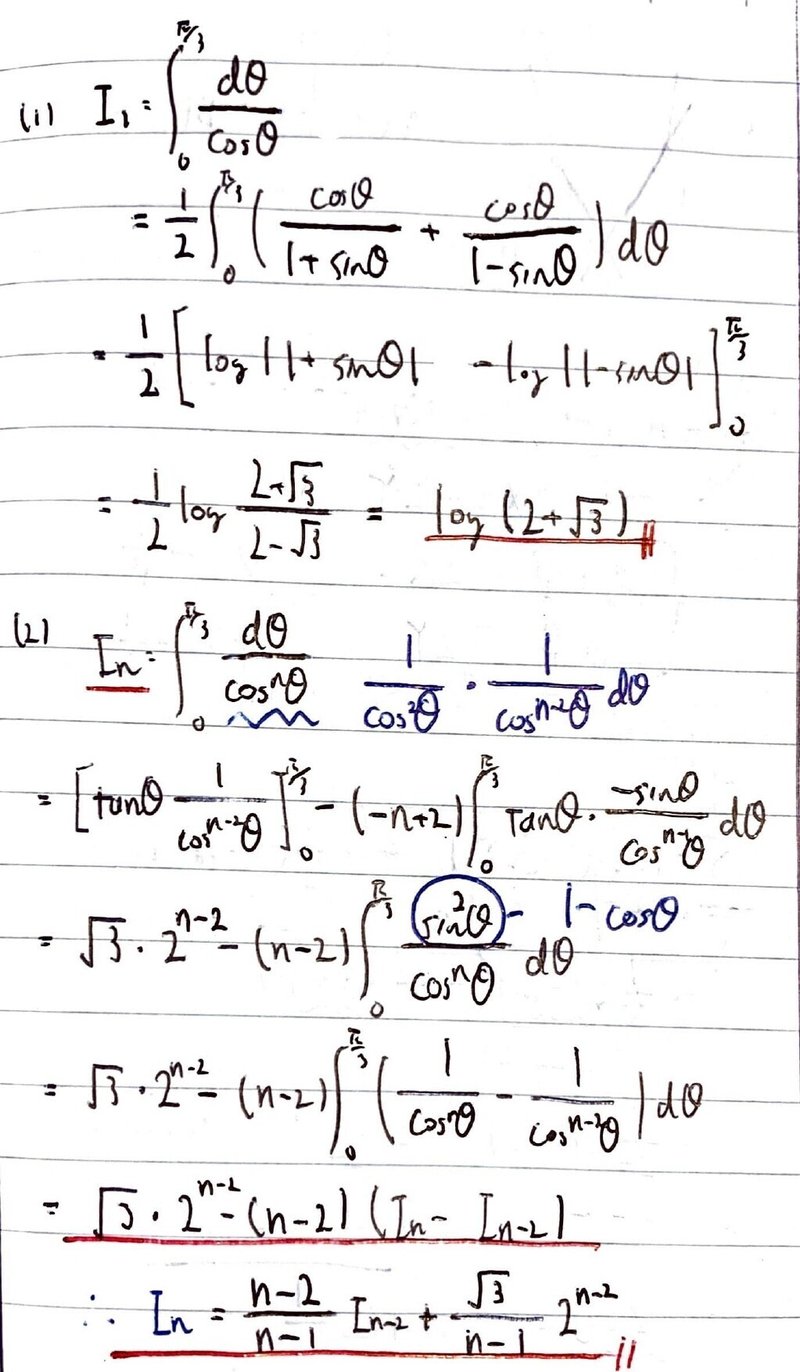 (1) I₁ = ∫₀^{π/3} dθ/cosθ
= 1/2 ∫₀^{π/3} ( cosθ/(1+sinθ) + cosθ/(1-sinθ) ) dθ
= 1/2 [ log|1+sinθ| - log|1-sinθ| ]₀^{π/3}
= 1/2 log (2+√3)/(2-√3) = log(2+√3)
(2) Iₙ = ∫₀^{π/3} dθ/cosⁿθ 1/cos²θ · 1/cos^{n-2}θ dθ
= [ tanθ 1/cos^{n-2}θ ]₀^{π/3} - (-n+2) ∫₀^{π/3} tanθ · -sinθ/cos^{n-1}θ dθ
= √3 · 2^{n-2} - (n-2) ∫₀^{π/3} sin²θ/cosⁿθ dθ - 1-cosθ
= √3 · 2^{n-2} - (n-2) ∫₀^{π/3} ( 1/cosⁿθ - 1/cos^{n-2}θ ) dθ
= √3 · 2^{n-2} - (n-2) (Iₙ - Iₙ₋₂)
∴ Iₙ = (n-2)/(n-1) Iₙ₋₂ + √3/(n-1) 2^{n-2}